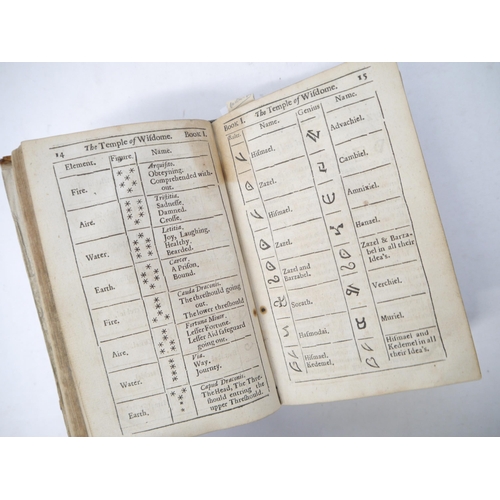 14 The Temple of Wiſdome. Book I.
Element. Figure. Name.
Fire. Acquiſitio.
Obteyning.
Comprehended with-
out.
Aire. Triſtitia.
Sadneſſe.
Damned.
Croſſe.
Water. Letitia.
Joy, Laughing.
Healthy.
Bearded.
Earth. Carcer.
A Priſon,
Bound.
Fire. Cauda Draconis.
The threſhould going
out.
The lower threſhould
Aire. Fortuna Minor.
Leſſer Fortune.
Leſſer Aid ſafeguard
going out.
Water. Via.
Way.
Journey.
Earth. Caput Draconis.
The Head, The Thre-
ſhould entring the
upper Threſhould.
Book I. The Temple of Wiſdome. 15
Ruler. Name. Genius Name.
Hiſmael. Advachiel.
Zazel. Cambiel.
Hiſmael. Amnixiel.
Zazel. Hanael.
Zazel and
Barzabel. Zazel & Barza-
bel in all their
Idea's.
Sorath. Verchiel.
Haſmodai. Muriel.
Hiſmael,
Kedemel. Hiſmael and
Kedemel in all
their Idea's.